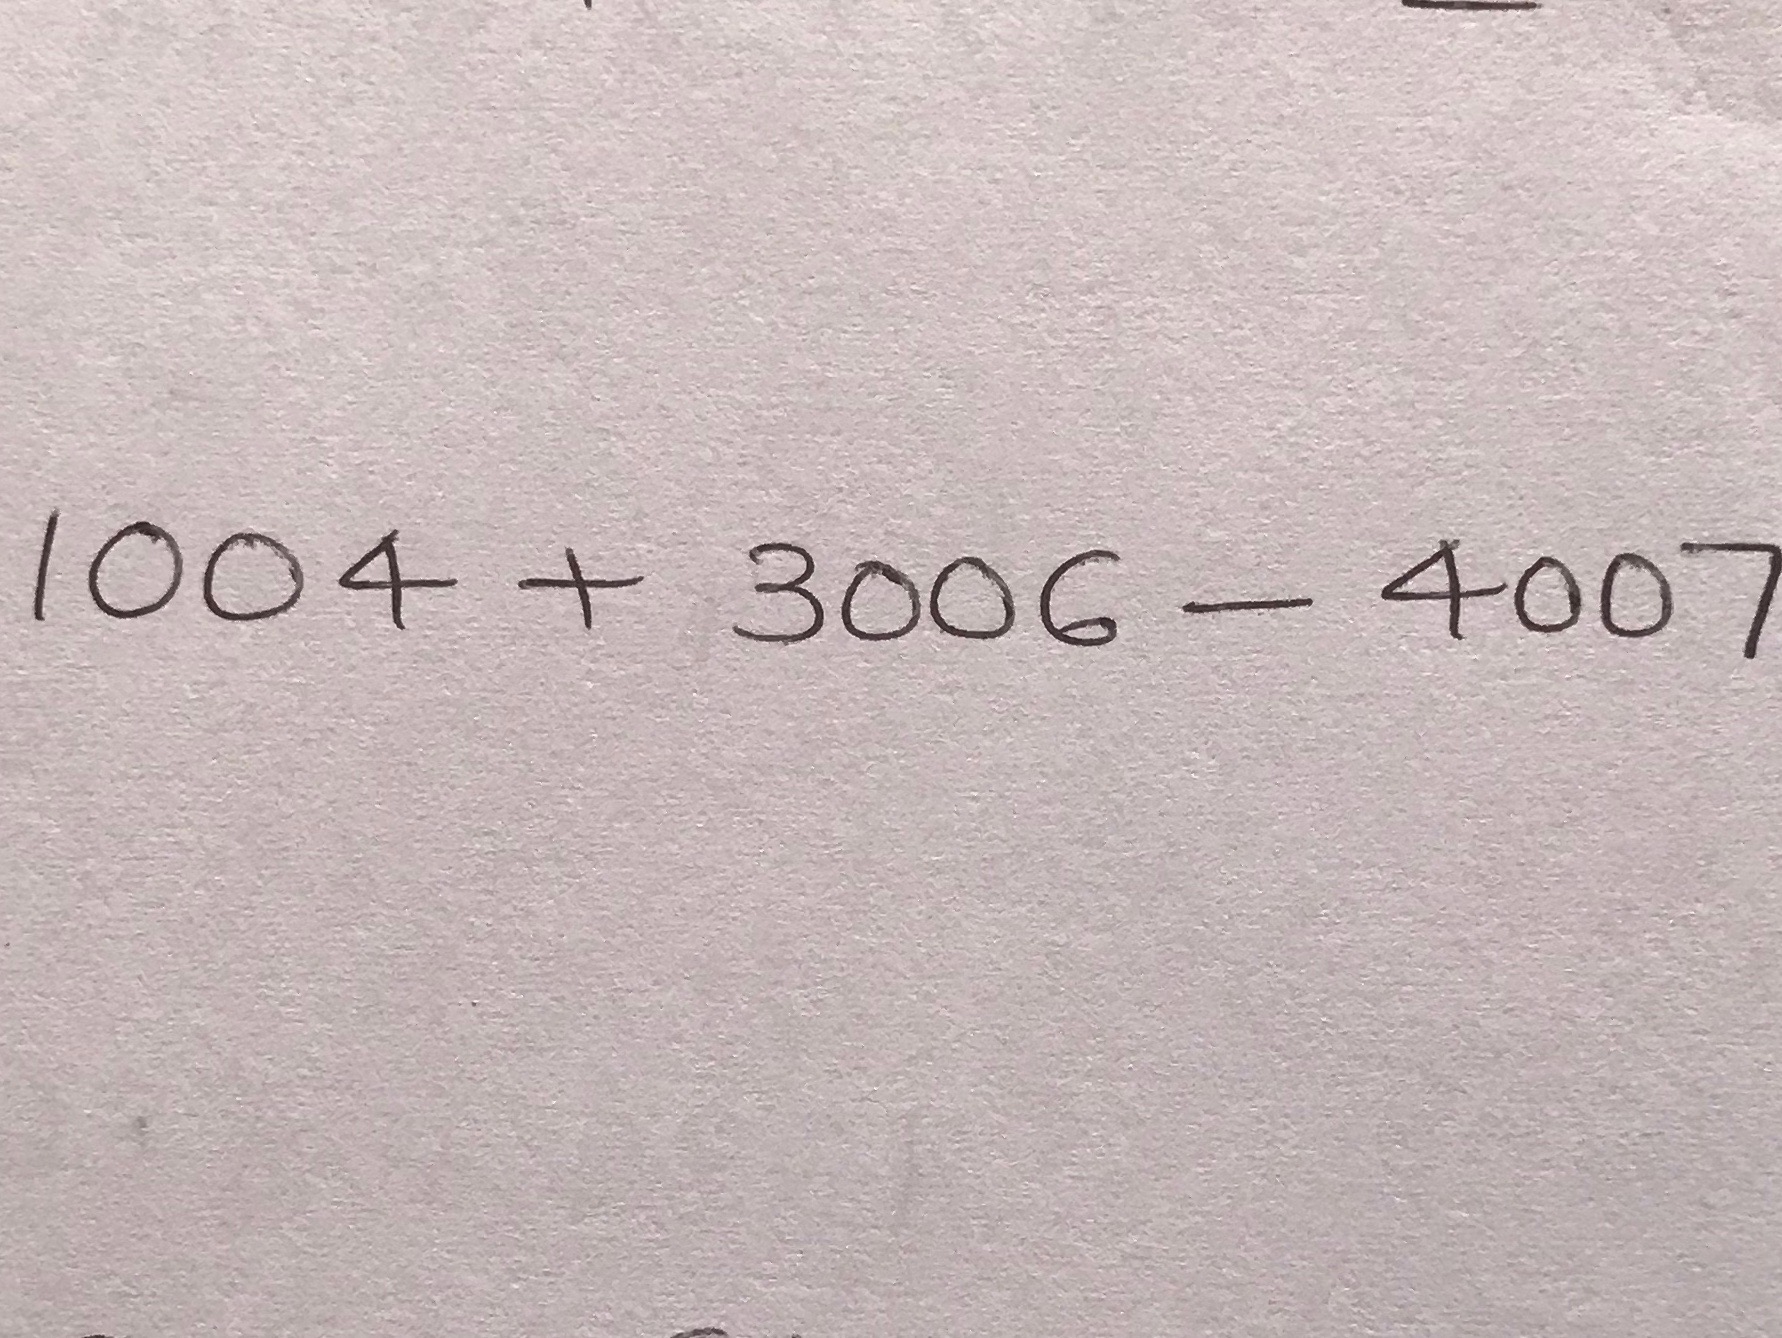 1004 + 3006 - 4007